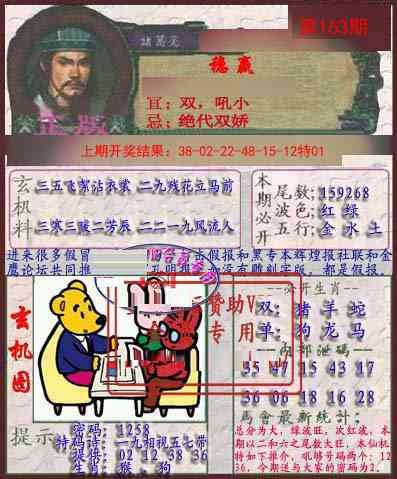 第163期
諸葛亮
稳赢
宜；双，吼小
忌；绝代双娇
正版
上期开奖结果：38-02-22-48-15-12特01
玄机料
三五飞絮沾衣裳 二九残花立马前
三寒三暖二芳辰 二二一九风流人
本期必开
尾数;159268
波色;红 绿
五行;金 水 土
进来很多假冒
击假报和黑专本辉煌报社联和金
鹰论坛共同推
都是假报.
玄机图
赞助V
专用
必开生肖
双: 猪 羊 蛇
单: 狗 龙 马
内部泄码
35 47 15 43 17
36 06 18 16 28
馬會最新統計:
总分为大，绿波旺，次红波，本
期以二和六之尾数大旺，本仙机
特如下推介，吼够号码两个：12
36，今期送与大家的密码为2．
提示
密码：1258
特码诗：一九相视五七带
提供：02 12 38 36
生肖：猴，狗